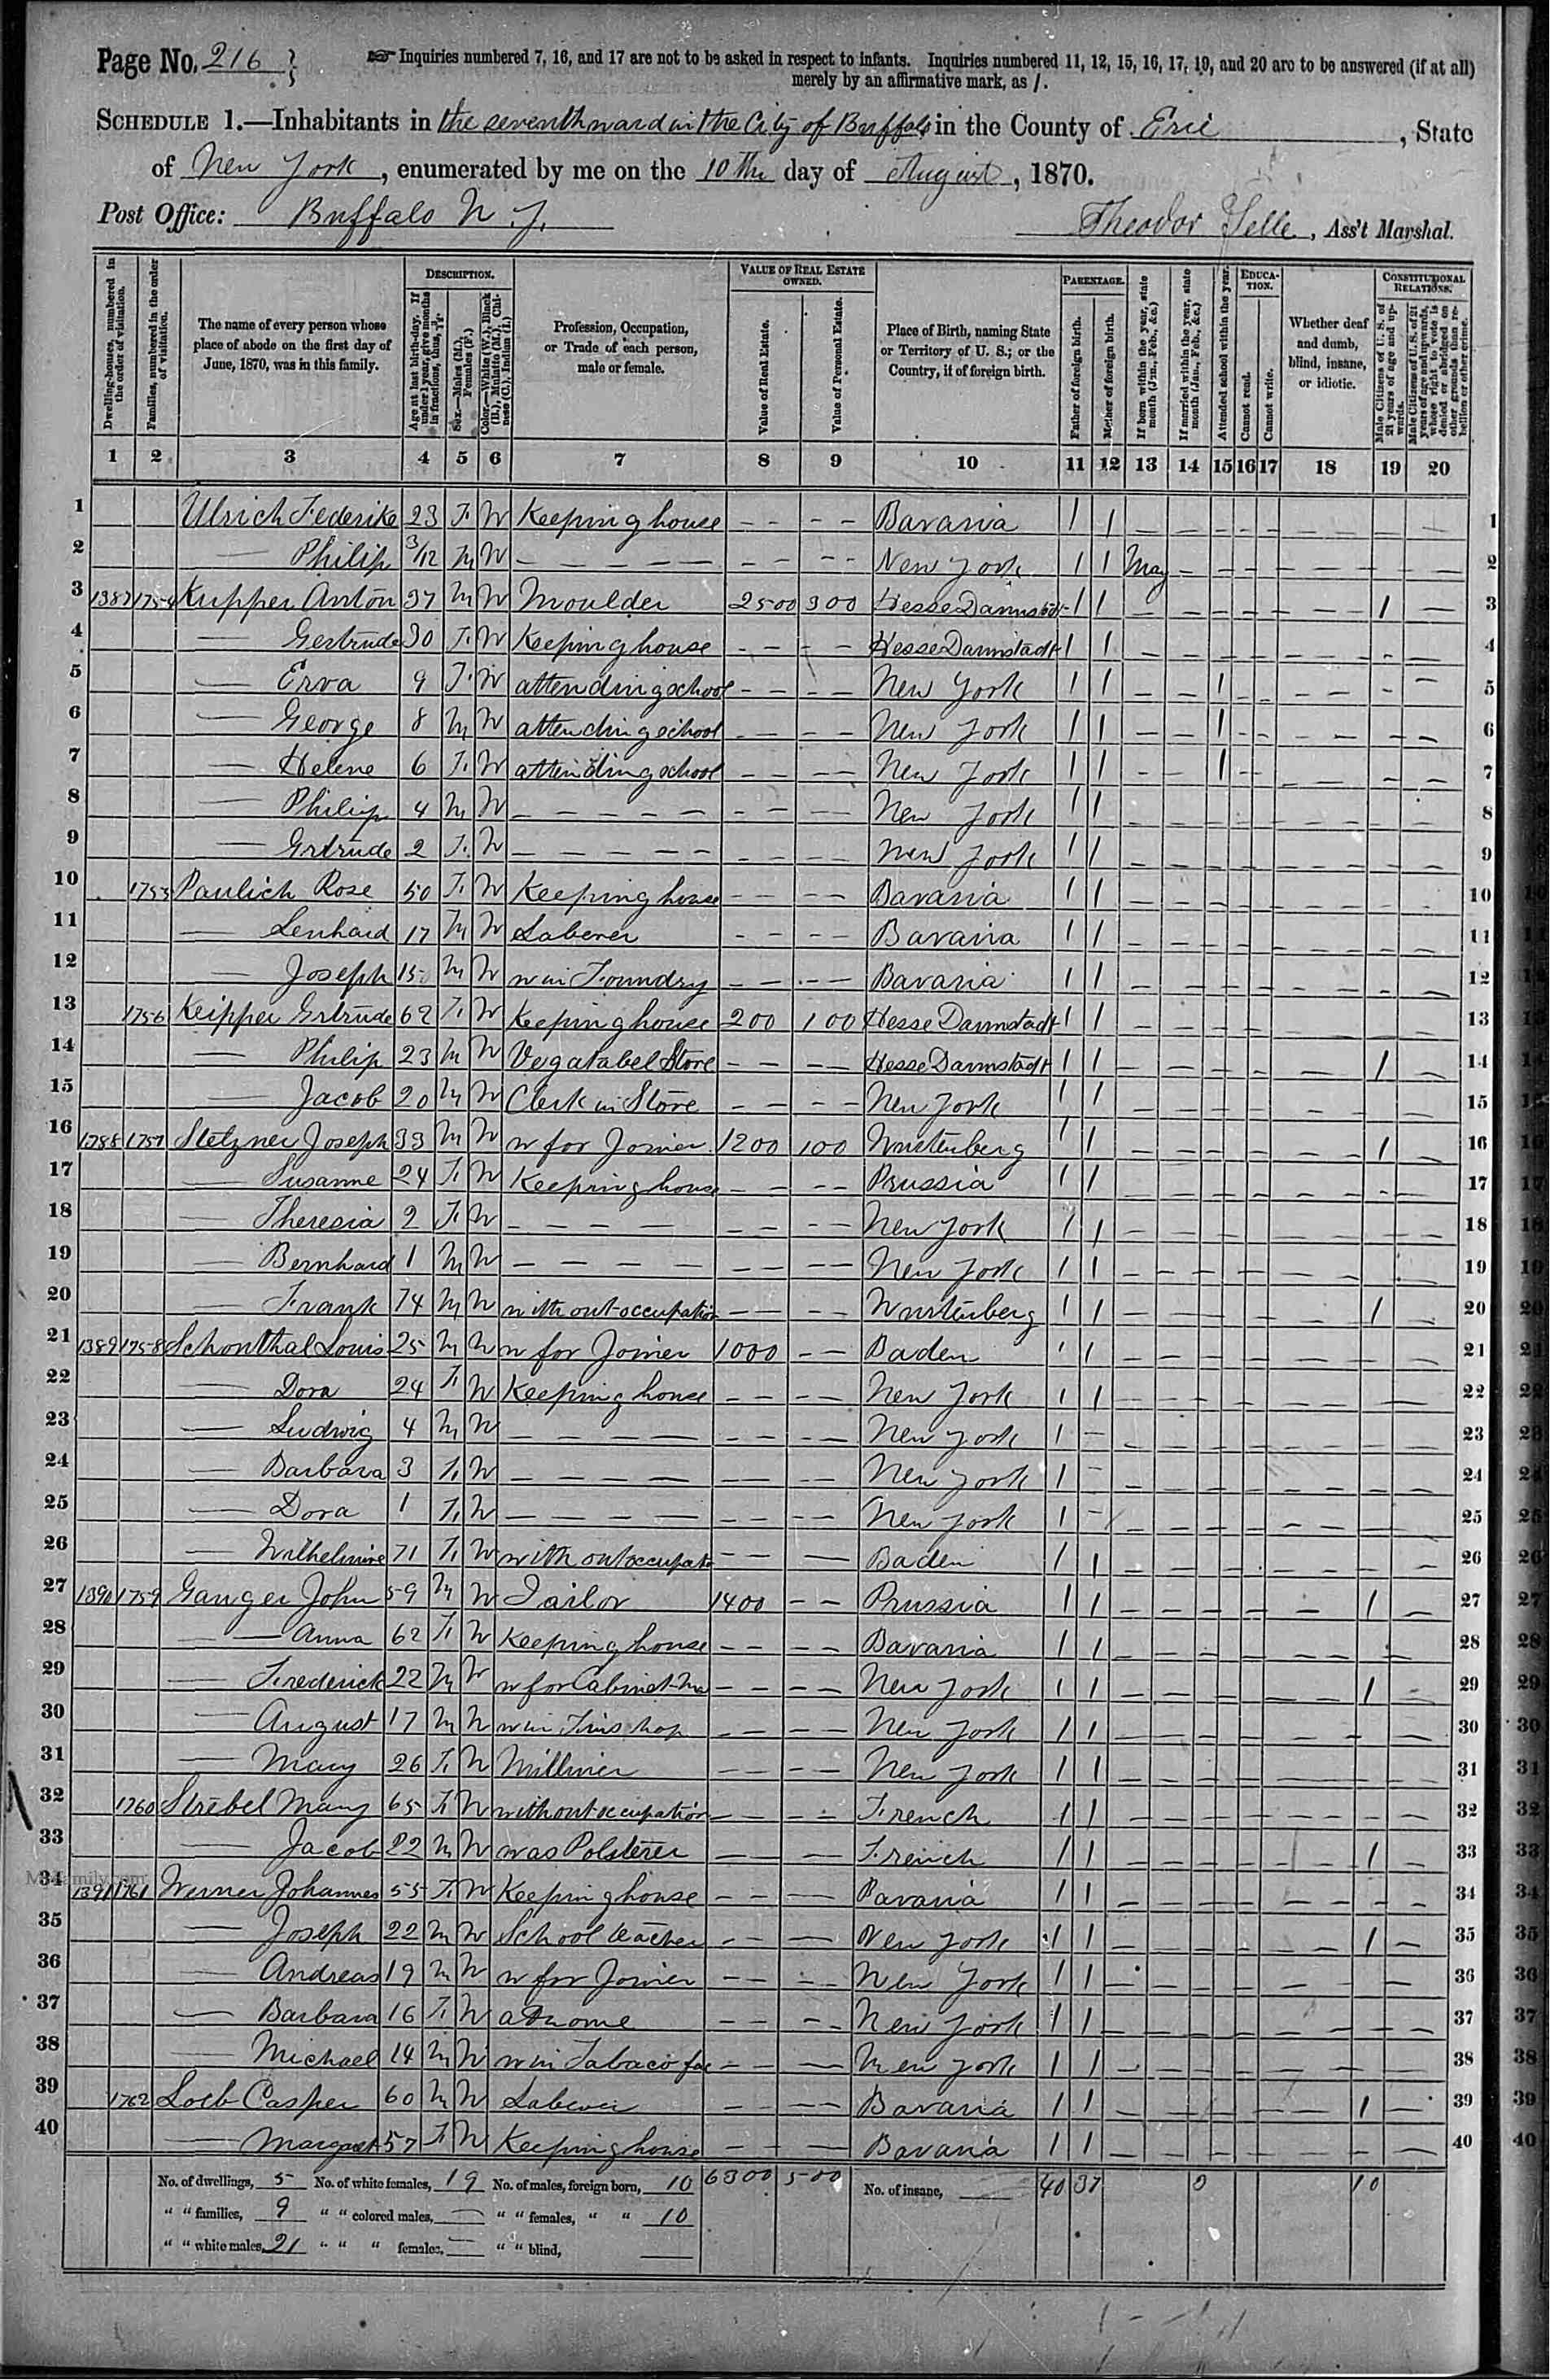 Page No. 216
☞ Inquiries numbered 7, 16, and 17 are not to be asked in respect to infants. Inquiries numbered 11, 12, 15, 16, 17, 19, and 20 are to be answered (if at all)
merely by an affirmative mark, as /.
SCHEDULE 1.—Inhabitants in the seventh ward in the City of Buffalo in the County of Erie, State
of New York, enumerated by me on the 10th day of August, 1870.
Post Office: Buffalo N. Y.
Theodor, Ass't Marshal.
Dwelling-houses, numbered in the order of visitation.
Families, numbered in the order of visitation.
The name of every person whose place of abode on the first day of June, 1870, was in this family.
DESCRIPTION.
Age at last birth-day. If under 1 year, give months in fractions, thus, 3/12
Sex.—Males (M.), Females (F.)
Color.—White (W.), Black (B.), Mulatto (M.), Chinese (C.), Indian (I.)
Profession, Occupation, or Trade of each person, male or female.
VALUE OF REAL ESTATE OWNED.
Value of Real Estate.
Value of Personal Estate.
Place of Birth, naming State or Territory of U. S.; or the Country, if of foreign birth.
PARENTAGE.
Father of foreign birth.
Mother of foreign birth.
If born within the year, state month (Jan., Feb., &c.)
If married within the year, state month (Jan., Feb., &c.)
Attended school within the year.
EDUCATION.
Cannot read.
Cannot write.
Whether deaf and dumb, blind, insane, or idiotic.
CONSTITUTIONAL RELATIONS.
Male Citizens of U. S. of 21 years of age and upwards.
Male Citizens of U. S. of 21 years of age and upwards, whose right to vote is denied or abridged on other grounds than rebellion or other crime.
1 2 3 4 5 6 7 8 9 10 11 12 13 14 15 16 17 18 19 20
1 Ulrich Federike 23 F. W Keeping house – – – – Bavaria / / 1
2 — Philip 3/12 M W – – – – New York / / May 2
3 1387 1754 Kupper Anton 37 M W Moulder 2500 300 Hesse Darmstadt / / / 3
4 — Gertrude 30 F. W Keeping house – – – – Hesse Darmstadt / / 4
5 — Erva 9 F. W attending school – – – – New York / / / 5
6 — George 8 M W attending school – – – – New York / / / 6
7 — Helene 6 F. W attending school – – – – New York / / / 7
8 — Philip 4 M W – – – – New York / / 8
9 — Grtrude 2 F. W – – – – New York / / 9
10 1755 Paulich Rose 50 F. W Keeping house – – – – Bavaria / / 10
11 — Lenhard 17 M W Laberer – – – – Bavaria / / 11
12 — Joseph 15 M W w in Foundry – – – – Bavaria / / 12
13 1756 Keipper Grtrude 62 F. W Keeping house 200 100 Hesse Darmstadt / / 13
14 — Philip 23 M W Vegatabel Store – – – – Hesse Darmstadt / / / 14
15 — Jacob 20 M W Clerk in Store – – – – New York / / 15
16 1388 1757 Stelzner Joseph 33 M W w for Joiner 1200 100 Wurtenberg / / / 16
17 — Susanne 24 F. W Keeping house – – – – Prussia / / 17
18 — Theresia 2 F. W – – – – New York / / 18
19 — Bernhard 1 M W – – – – New York / / 19
20 — Frank 74 M W without occupation – – – – Wurtenberg / / / 20
21 1389 1758 Schonthal Louis 25 M W w for Joiner 1000 – – Baden / / 21
22 — Dora 24 F. W Keeping house – – – – New York / / 22
23 — Ludwig 4 M W – – – – New York / – 23
24 — Barbara 3 F. W – – – – New York / – 24
25 — Dora 1 F. W – – – – New York / – 25
26 — Wilhelmine 71 F. W without occupati – – – Baden / / 26
27 1390 1759 Ganger John 59 M W Tailor 1400 – – Prussia / / / 27
28 — Anna 62 F. W Keeping house – – – – Bavaria / / 28
29 — Frederick 22 M W w for Cabinet Ma – – – – New York / / / 29
30 — August 17 M W w in Tinshop – – – – New York / / 30
31 — Mary 26 F. W Milliner – – – – New York / / 31
32 1760 Strebel Mary 65 F. W without occupation – – – – French / / 32
33 — Jacob 22 M W was Polsterer – – French / / / 33
34 1391 1761 Werner Johannes 55 F. W Keeping house – – – Bavaria / / 34
35 — Joseph 22 M W School teacher – – – New York / / / 35
36 — Andreas 19 M W w for Joiner – – – – New York / / 36
37 — Barbara 16 F. W at home – – – – New York / / 37
38 — Michael 14 M W w in Tabaco fac – – – New York / / 38
39 1762 Loeb Casper 60 M W Laberer – – – Bavaria / / / 39
40 — Margaret 57 F. W Keeping house – – – Bavaria / / 40
No. of dwellings, 5 No. of white females, 19 No. of males, foreign born, 10 6300 500 No. of insane, 40 37 0 10
" " families, 9 " " colored males, — " " females, " " 10
" " white males, 21 " " " females, — " " blind,